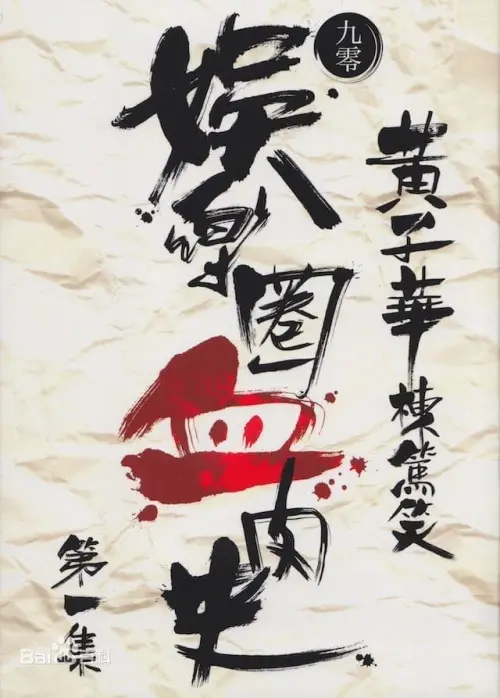 黃子華棟篤笑
九零
娛樂圈血肉史
第一集
Bai百科